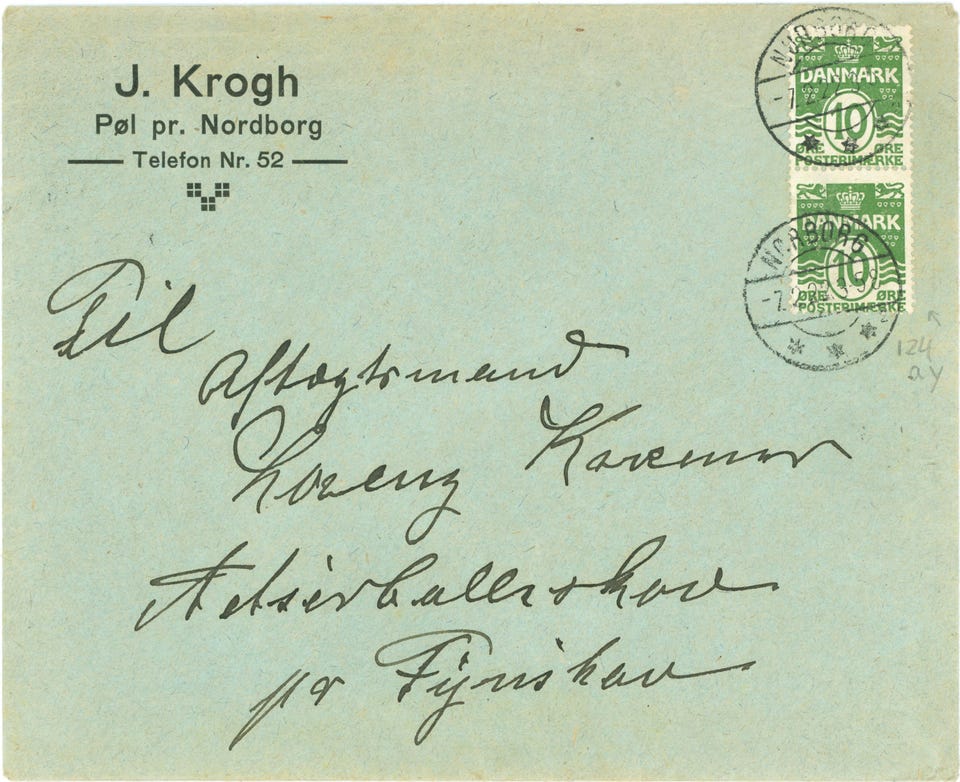 J. Krogh
Pøl pr. Nordborg
Telefon Nr. 52
NORBORG
DANMARK
10
ØRE ØRE
POSTFRIMÆRKE
NORBORG
DANMARK
10
ØRE ØRE
POSTFRIMÆRKE
124
ay
Til
Aftægtsmand
Lorenz
Adserballeskov
pr Fynshav